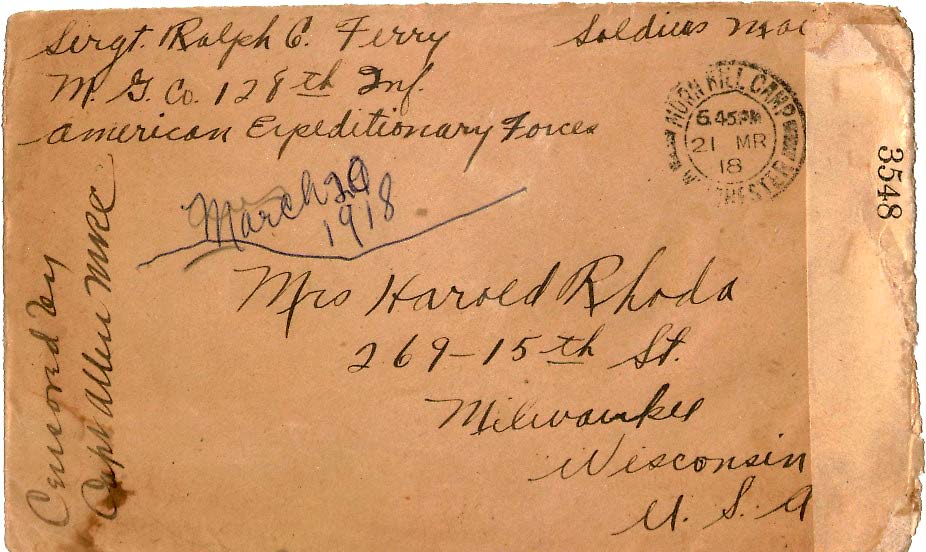 Sergt. Ralph C. Ferry
Soldiers Mai
M. G. Co. 128th Inf.
American Expeditionary Forces
MORN HILL CAMP
6.45PM
21 MR
18
W CHESTER
3548
March 20
1918
Mrs Harold Rhoda
269-15th St.
Milwaukee
Wisconsin
U. S. A
Censord by
Capt Allen